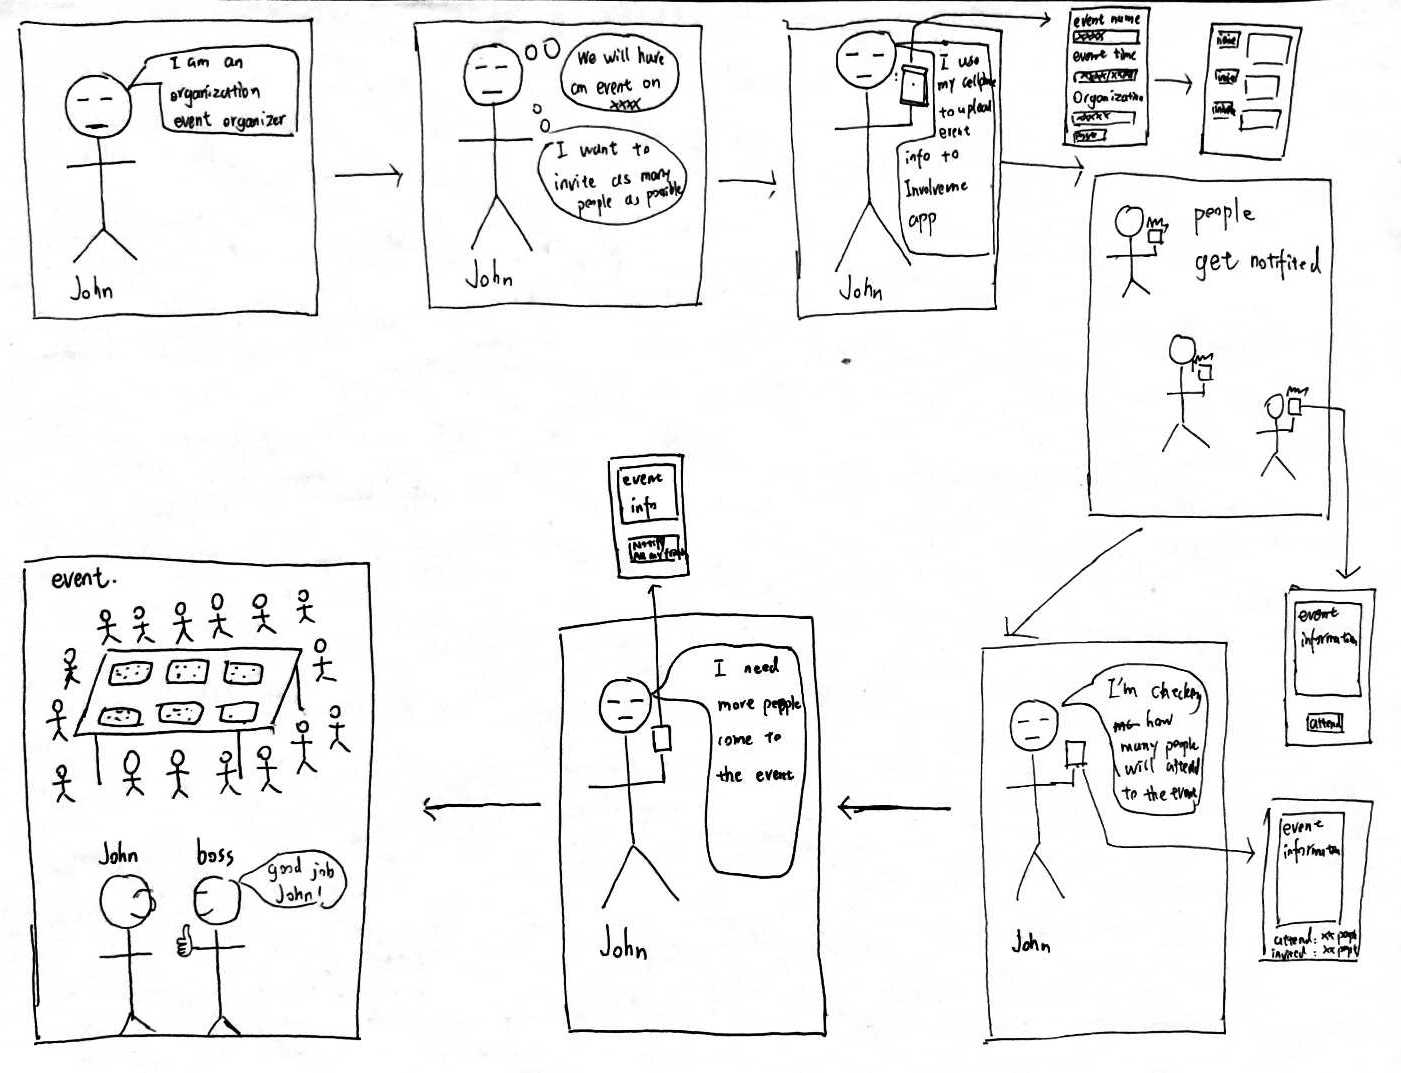 I am an
organization
event organizer
John
We will have
an event on
xxxx
I want to
invite as many
people as possible
John
I use
my cellphone
to upload
event
info to
Involveme
app
John
event name
xxxx
event time
Organization
xxxx
people
get notifited
event
information
attend
I'm checking
how
many people
will attend
to the event
John
event
information
attend: xx peopl
invited: xx peopl
I need
more people
come to
the event
John
event
info
Notify
event.
John
boss
good job
John!